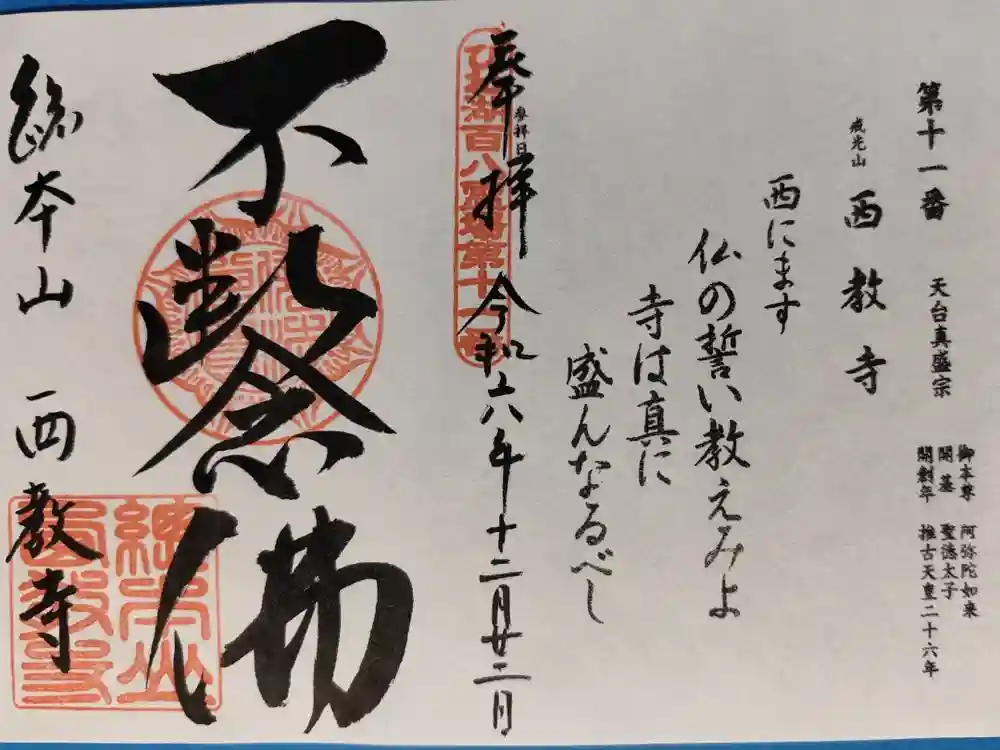 第十一番 天台真盛宗
御本尊 阿弥陀如来
開基 聖徳太子
開創年 推古天皇二十六年
戒光山 西教寺
西にます
仏の誓い教えみよ
寺は真に
盛んなるべし
参拝日
奉拝 令和六年十二月廿二日
不断念佛
総本山 西教寺